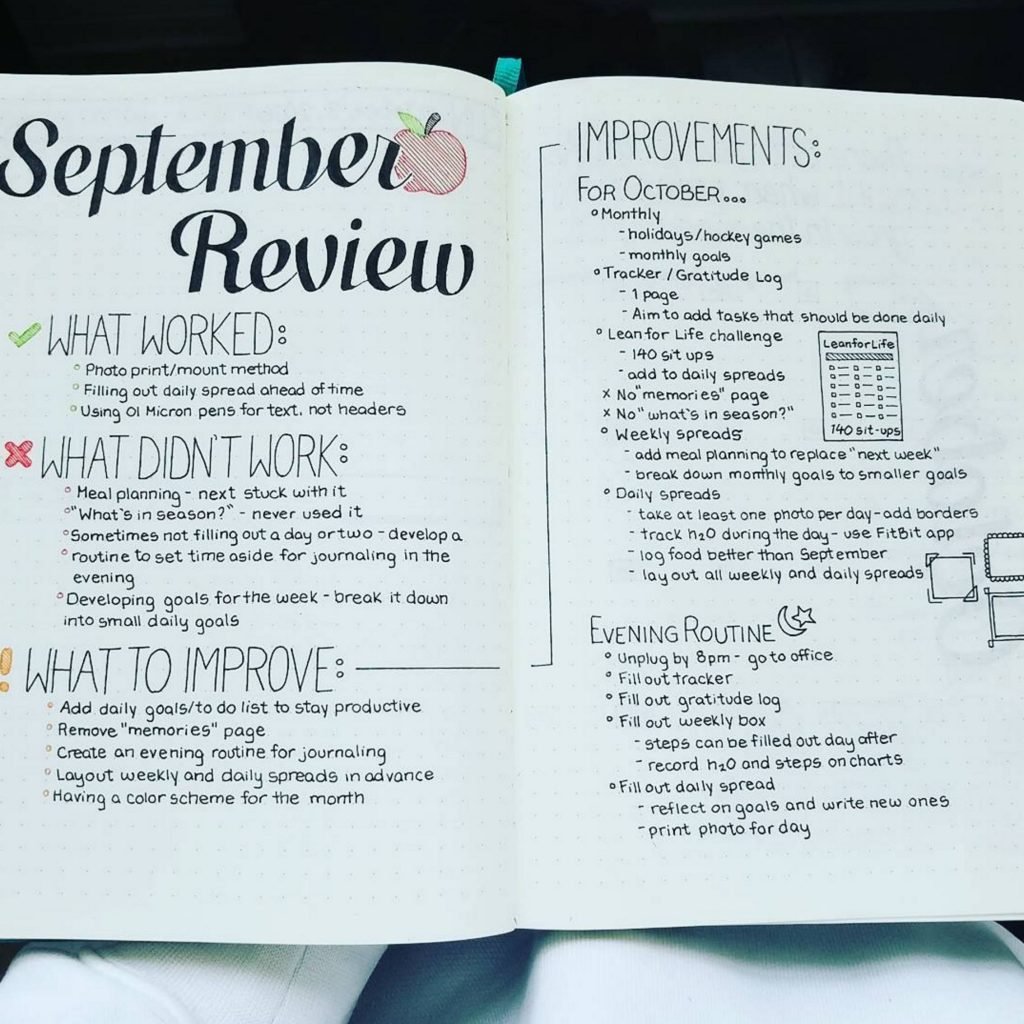 September
Review
WHAT WORKED:
Photo print/mount method
Filling out daily spread ahead of time
Using 01 Micron pens for text, not headers
WHAT DIDN'T WORK:
Meal planning - next stuck with it
"What's in season?" - never used it
Sometimes not filling out a day or two - develop a
routine to set time aside for journaling in the
evening
Developing goals for the week - break it down
into small daily goals
! WHAT TO IMPROVE:
Add daily goals/to do list to stay productive
Remove "memories" page
Create an evening routine for journaling
Layout weekly and daily spreads in advance
Having a color scheme for the month
IMPROVEMENTS:
FOR OCTOBER...
Monthly
- holidays/hockey games
- monthly goals
Tracker / Gratitude Log
- 1 page
- Aim to add tasks that should be done daily
Lean for Life challenge
- 140 sit ups
- add to daily spreads
x No "memories" page
x No "what's in season?"
Lean for Life
140 sit-ups
Weekly spreads
- add meal planning to replace "next week"
- break down monthly goals to smaller goals
Daily spreads
- take at least one photo per day - add borders
- track h2o during the day - use FitBit app
- log food better than September
- lay out all weekly and daily spreads
EVENING ROUTINE
Unplug by 8pm - go to office
Fill out tracker
Fill out gratitude log
Fill out weekly box
- steps can be filled out day after
- record h2o and steps on charts
Fill out daily spread
- reflect on goals and write new ones
- print photo for day